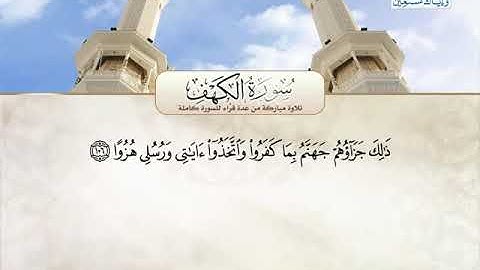 وإياك نستعين
سورة الكهف
تلاوة مباركة من عدة قراء للسورة كاملة
ذَٰلِكَ جَزَآؤُهُمْ جَهَنَّمُ بِمَا كَفَرُوا۟ وَٱتَّخَذُوٓا۟ ءَايَٰتِى وَرُسُلِى هُزُوًا ١٠٦